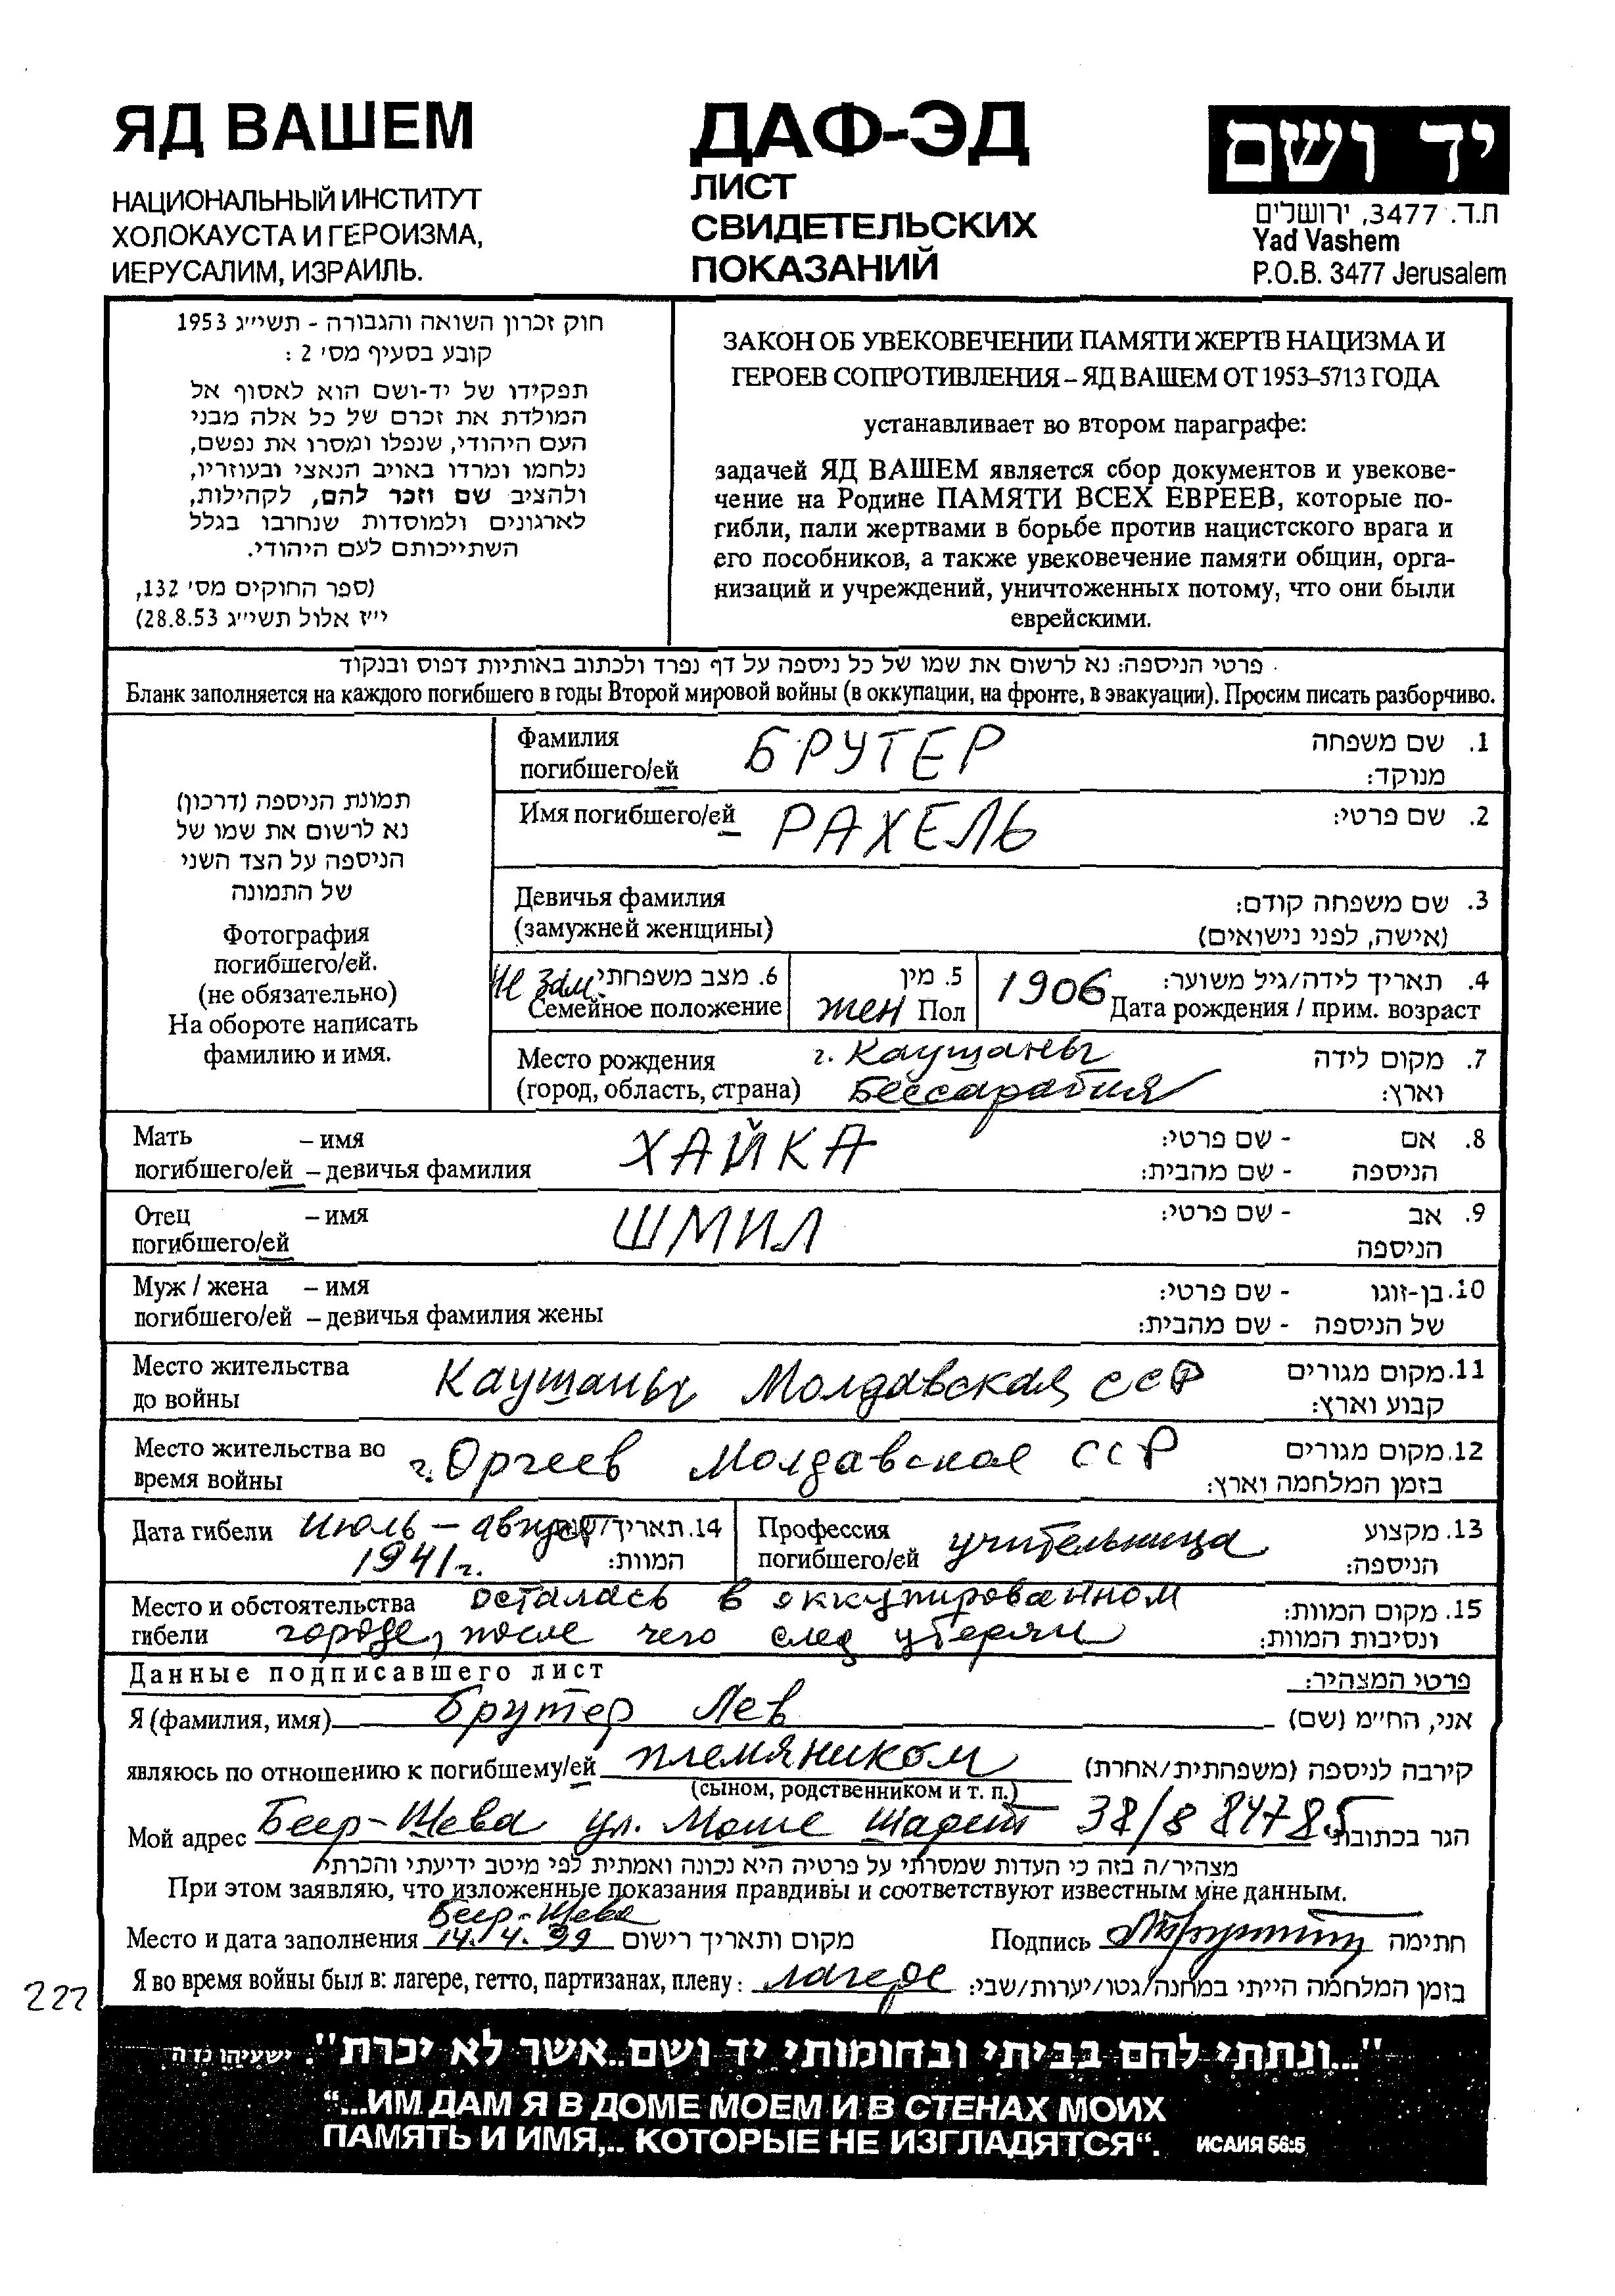 ЯД ВАШЕМ
НАЦИОНАЛЬНЫЙ ИНСТИТУТ
ХОЛОКАУСТА И ГЕРОИЗМА,
ИЕРУСАЛИМ, ИЗРАИЛЬ.
ДАФ-ЭД
ЛИСТ
СВИДЕТЕЛЬСКИХ
ПОКАЗАНИЙ
יד ושם
ת.ד. 3477, ירושלים
Yad Vashem
P.O.B. 3477 Jerusalem
חוק זכרון השואה והגבורה - תשי״ג 1953
קובע בסעיף מס׳ 2 :
תפקידו של יד-ושם הוא לאסוף אל
המולדת את זכרם של כל אלה מבני
העם היהודי, שנפלו ומסרו את נפשם,
נלחמו ומרדו באויב הנאצי ובעוזריו,
ולהציב שם וזכר להם, לקהילות,
לארגונים ולמוסדות שנחרבו בגלל
השתייכותם לעם היהודי.
(ספר החוקים מס׳ 132,
י״ז אלול תשי״ג 28.8.53)
ЗАКОН ОБ УВЕКОВЕЧЕНИИ ПАМЯТИ ЖЕРТВ НАЦИЗМА И
ГЕРОЕВ СОПРОТИВЛЕНИЯ – ЯД ВАШЕМ ОТ 1953–5713 ГОДА
устанавливает во втором параграфе:
задачей ЯД ВАШЕМ является сбор документов и увекове-
чение на Родине ПАМЯТИ ВСЕХ ЕВРЕЕВ, которые по-
гибли, пали жертвами в борьбе против нацистского врага и
его пособников, а также увековечение памяти общин, орга-
низаций и учреждений, уничтоженных потому, что они были
еврейскими.
פרטי הניספה: נא לרשום את שמו של כל ניספה על דף נפרד ולכתוב באותיות דפוס ובנקוד
Бланк заполняется на каждого погибшего в годы Второй мировой войны (в оккупации, на фронте, в эвакуации). Просим писать разборчиво.
תמונת הניספה (דרכון)
נא לרשום את שמו של
הניספה על הצד השני
של התמונה
Фотография
погибшего/ей.
(не обязательно)
На обороте написать
фамилию и имя.
Фамилия БРУТЕР 1. שם משפחה
погибшего/ей מנוקד:
Имя погибшего/ей РАХЕЛЬ 2. שם פרטי:
Девичья фамилия 3. שם משפחה קודם:
(замужней женщины) (אישה, לפני נישואים)
Не зам. 6. מצב משפחתי 5. מין 1906 4. תאריך לידה/גיל משוער:
Семейное положение жен Пол Дата рождения / прим. возраст
Место рождения г. Каушаны 7. מקום לידה
(город, область, страна) Бессарабия וארץ:
Мать – имя ХАЙКА 8. אם - שם פרטי:
погибшего/ей – девичья фамилия הניספה - שם מהבית:
Отец – имя ШМИЛ 9. אב - שם פרטי:
погибшего/ей הניספה
Муж / жена – имя 10. בן-זוגו - שם פרטי:
погибшего/ей – девичья фамилия жены של הניספה - שם מהבית:
Место жительства Каушаны Молдавская ССР 11. מקום מגורים
до войны קבוע וארץ:
Место жительства во г. Оргеев Молдавская ССР 12. מקום מגורים
время войны בזמן המלחמה וארץ:
Дата гибели Июль – август 14. תאריך
1941 г. המוות:
Профессия учительница 13. מקצוע
погибшего/ей הניספה:
Место и обстоятельства осталась в оккупированном 15. מקום המוות:
гибели городе, после чего след утерян ונסיבות המוות:
Данные подписавшего лист פרטי המצהיר:
Я (фамилия, имя) Брутер Лев אני, הח״מ (שם)
являюсь по отношению к погибшему/ей племяником קירבה לניספה (משפחתית/אחרת)
(сыном, родственником и т. п.)
Мой адрес Беер-Шева ул. Моше Шарет 38/8 84785 הגר בכתובת
מצהיר/ה בזה כי העדות שמסרתי על פרטיה היא נכונה ואמתית לפי מיטב ידיעתי והכרתי
При этом заявляю, что изложенные показания правдивы и соответствуют известным мне данным.
Беер-Шева
Место и дата заполнения 14.4.99 מקום ותאריך רישום Подпись חתימה
Я во время войны был в: лагере, гетто, партизанах, плену: лагере בזמן המלחמה הייתי במחנה/גטו/יערות/שבי:
222
"...ונתתי להם בביתי ובחומותי יד ושם..אשר לא יכרת". ישעיהו נו ה
“...ИМ ДАМ Я В ДОМЕ МОЕМ И В СТЕНАХ МОИХ
ПАМЯТЬ И ИМЯ,.. КОТОРЫЕ НЕ ИЗГЛАДЯТСЯ“. ИСАИЯ 56:5